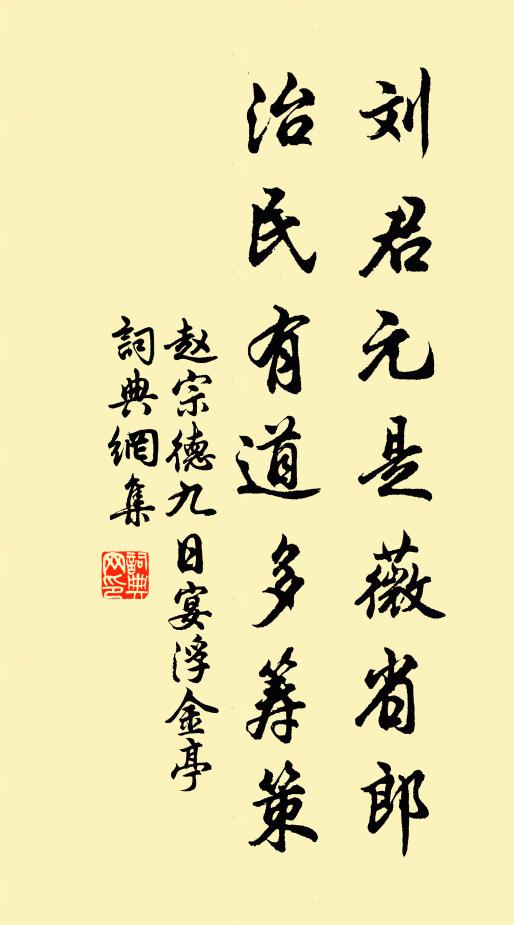 刘君元是薇省郎
治民有道多筹策
赵宗德九日宴浮金亭
詞典網集
詞典
网印